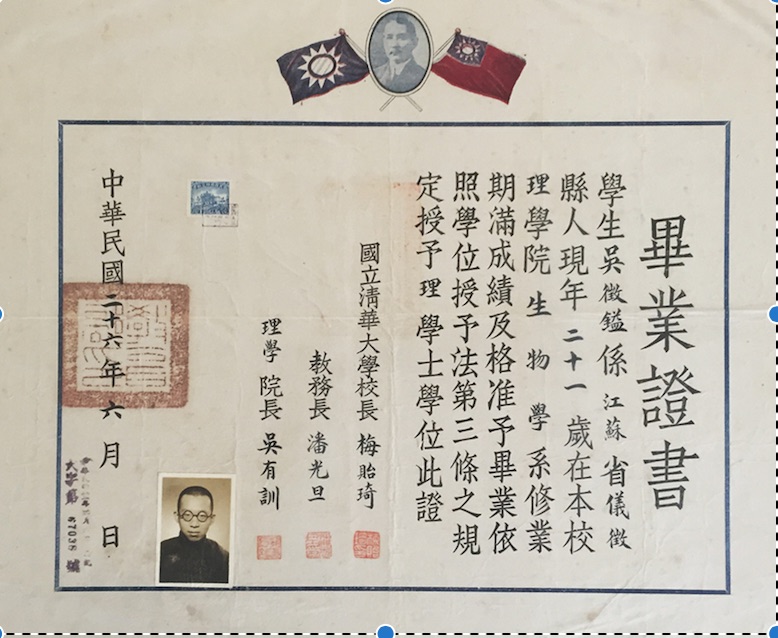 畢業證書
學生吳徵鎰係江蘇省儀徵
縣人現年二十一歲在本校
理學院生物學系修業
期滿成績及格准予畢業依
照學位授予法第三條之規
定授予理學士學位此證
國立清華大學校長梅貽琦
教務長潘光旦
理學院長吳有訓
中華民國二十六年六月 日
大字第67038號